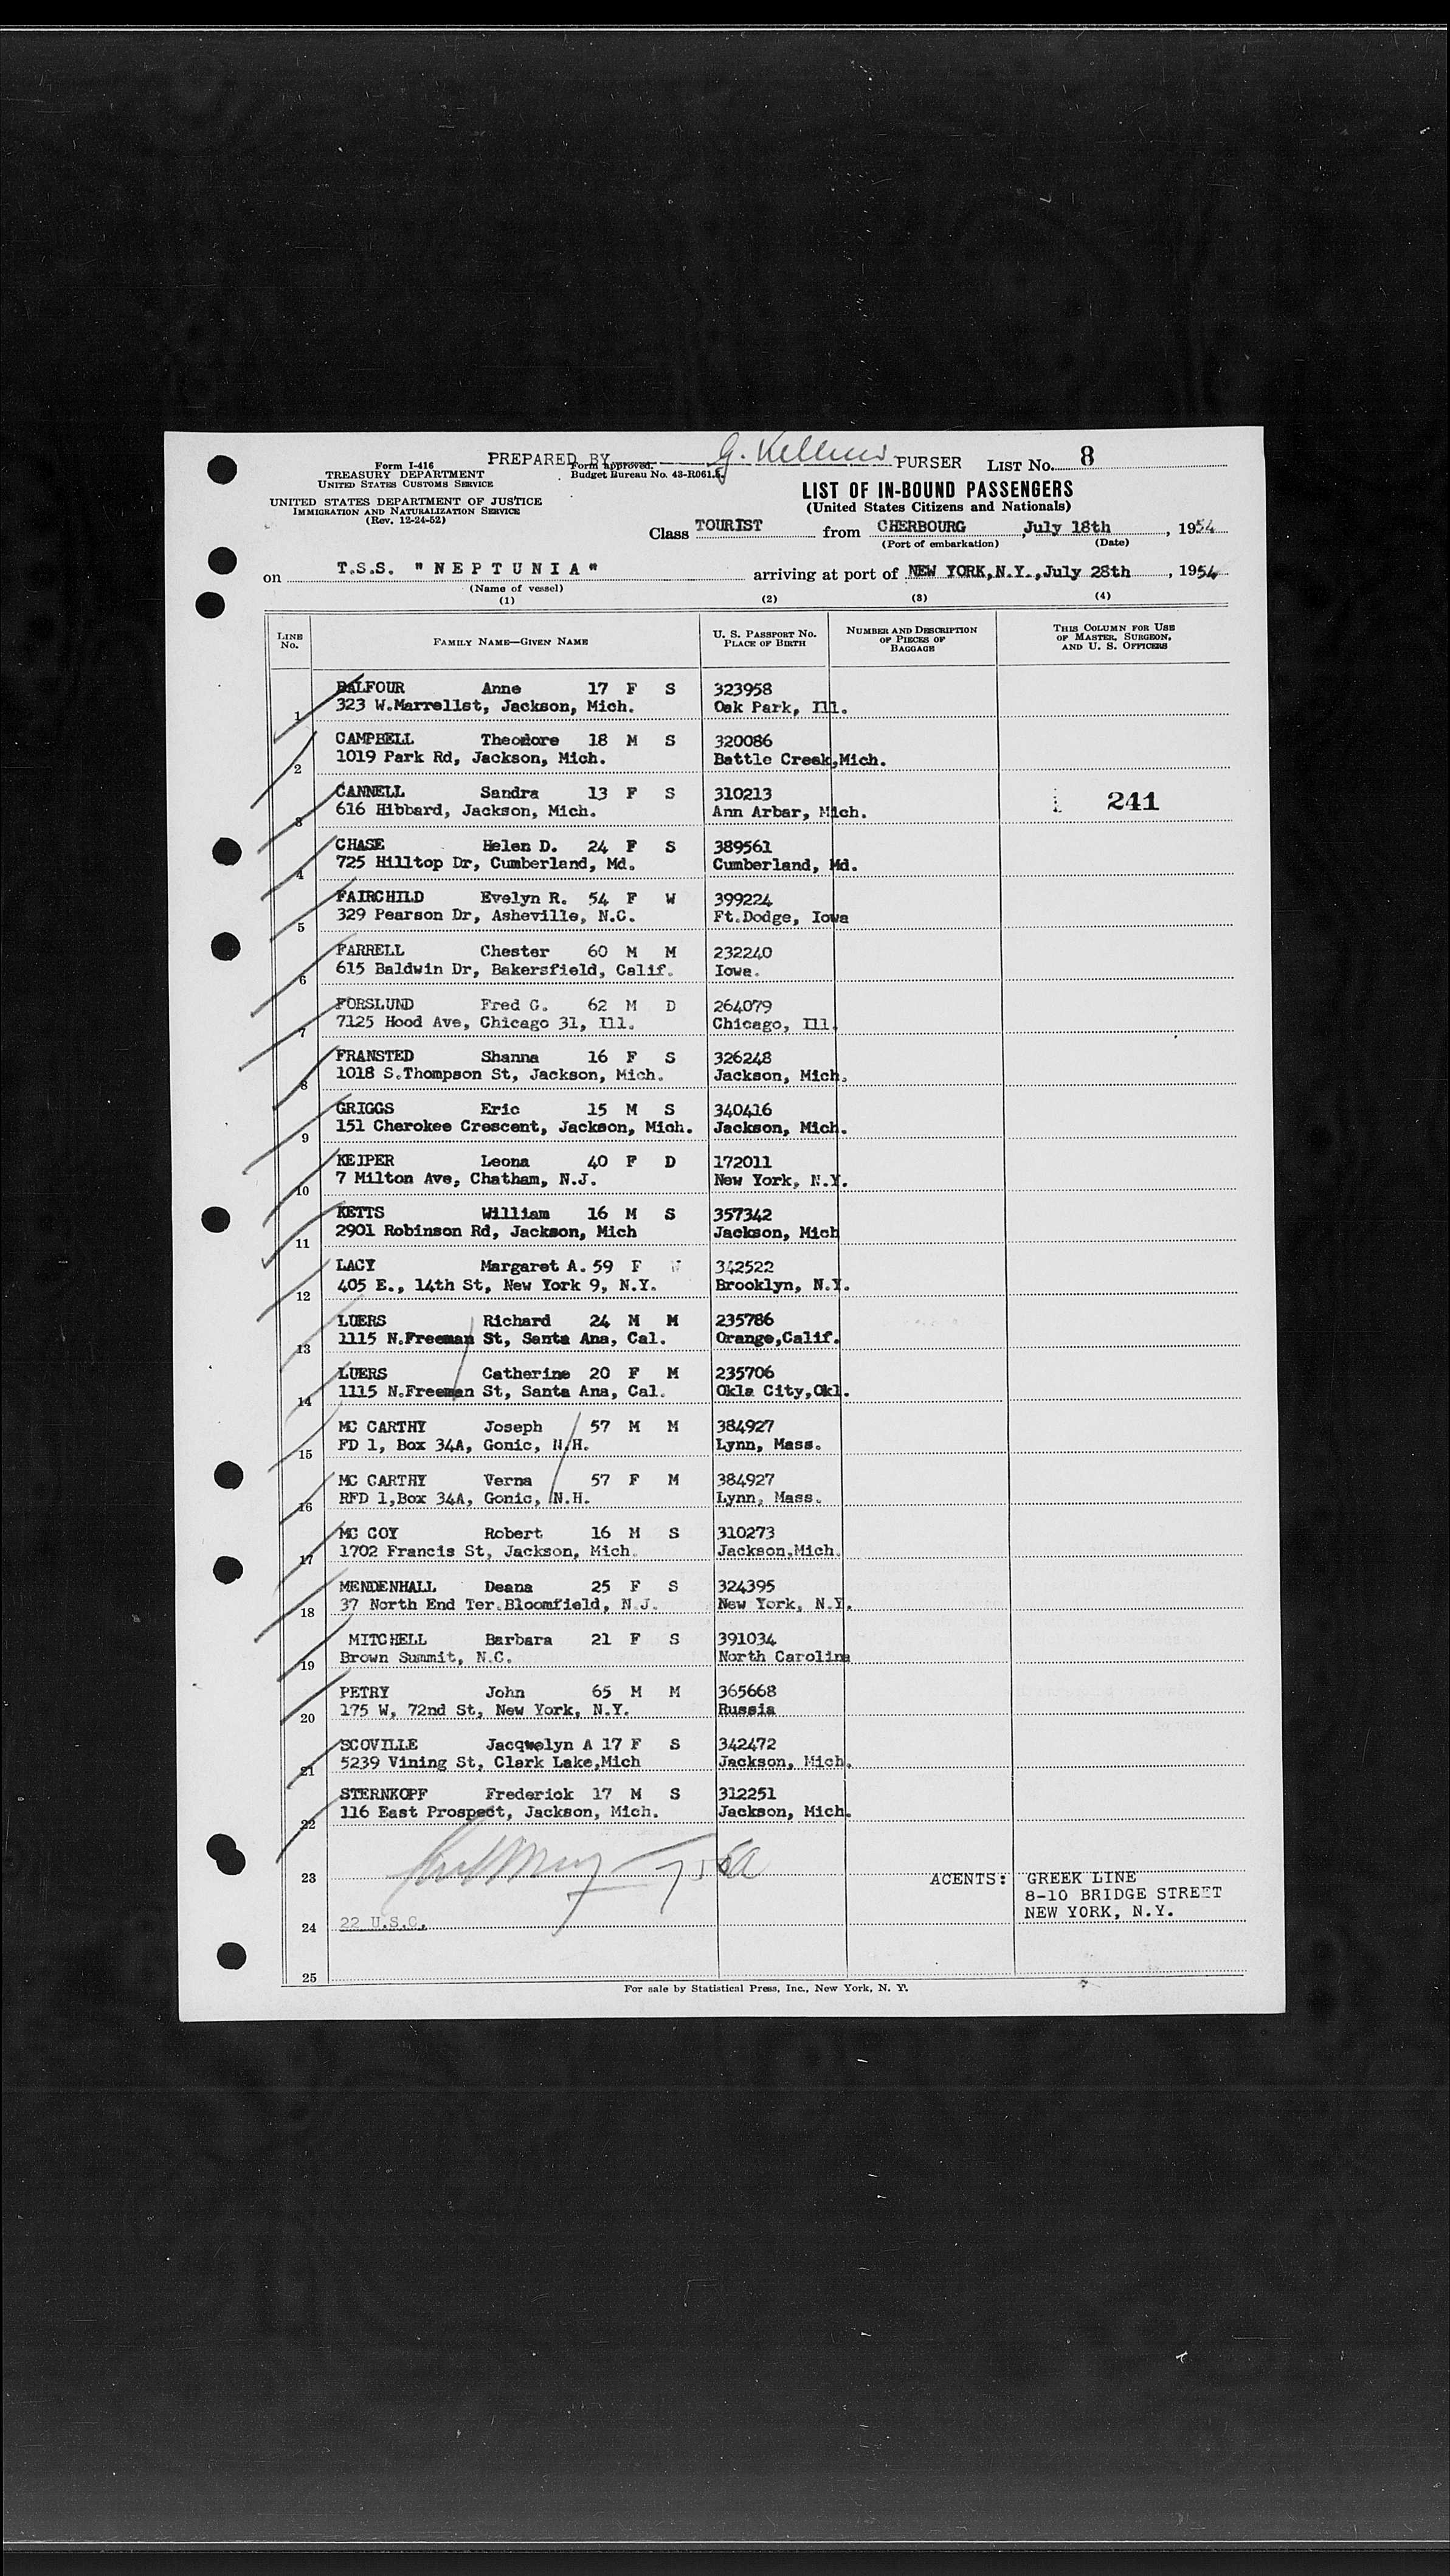 PREPARED BY G. Kellenis PURSER LIST No. 8
Form I-416
TREASURY DEPARTMENT
UNITED STATES CUSTOMS SERVICE
Form approved.
Budget Bureau No. 43-R061.5.
UNITED STATES DEPARTMENT OF JUSTICE
IMMIGRATION AND NATURALIZATION SERVICE
(Rev. 12-24-52)
LIST OF IN-BOUND PASSENGERS
(United States Citizens and Nationals)
Class TOURIST from CHERBOURG , July 18th , 1954
(Port of embarkation) (Date)
on T.S.S. "NEPTUNIA" arriving at port of NEW YORK,N.Y.,July 28th , 1954
(Name of vessel)
(1) (2) (3) (4)
LINE No. FAMILY NAME—GIVEN NAME U. S. PASSPORT No. PLACE OF BIRTH NUMBER AND DESCRIPTION OF PIECES OF BAGGAGE THIS COLUMN FOR USE OF MASTER, SURGEON, AND U. S. OFFICERS
BALFOUR Anne 17 F S 323958
1 323 W.Marrellst, Jackson, Mich. Oak Park, Ill.
CAMPBELL Theodore 18 M S 320086
2 1019 Park Rd, Jackson, Mich. Battle Creek,Mich.
CANNELL Sandra 13 F S 310213
3 616 Hibbard, Jackson, Mich. Ann Arbar, Mich. 241
CHASE Helen D. 24 F S 389561
4 725 Hilltop Dr, Cumberland, Md. Cumberland, Md.
FAIRCHILD Evelyn R. 54 F W 399224
5 329 Pearson Dr, Asheville, N.C. Ft.Dodge, Iowa
FARRELL Chester 60 M M 232240
6 615 Baldwin Dr, Bakersfield, Calif. Iowa.
FORSLUND Fred G. 62 M D 264079
7 7125 Hood Ave, Chicago 31, Ill. Chicago, Ill.
FRANSTED Shanna 16 F S 326248
8 1018 S.Thompson St, Jackson, Mich. Jackson, Mich.
GRIGGS Eric 15 M S 340416
9 151 Cherokee Crescent, Jackson, Mich. Jackson, Mich.
KEIPER Leona 40 F D 172011
10 7 Milton Ave, Chatham, N.J. New York, N.Y.
KETTS William 16 M S 357342
11 2901 Robinson Rd, Jackson, Mich Jackson, Mich
LACY Margaret A. 59 F W 342522
12 405 E., 14th St, New York 9, N.Y. Brooklyn, N.Y.
LUERS Richard 24 M M 235786
13 1115 N.Freeman St, Santa Ana, Cal. Orange,Calif.
LUERS Catherine 20 F M 235706
14 1115 N.Freeman St, Santa Ana, Cal. Okla City,Okl.
MC CARTHY Joseph 57 M M 384927
15 FD 1, Box 34A, Gonic, N.H. Lynn, Mass.
MC CARTHY Verna 57 F M 384927
16 RFD 1,Box 34A, Gonic, N.H. Lynn, Mass.
MC COY Robert 16 M S 310273
17 1702 Francis St, Jackson, Mich. Jackson,Mich.
MENDENHALL Deana 25 F S 324395
18 37 North End Ter.Bloomfield, N.J. New York, N.Y.
MITCHELL Barbara 21 F S 391034
19 Brown Summit, N.C. North Carolina
PETRY John 65 M M 365668
20 175 W, 72nd St, New York, N.Y. Russia
SCOVILLE Jacqwelyn A 17 F S 342472
21 5239 Vining St, Clark Lake,Mich Jackson, Mich.
STERNKOPF Frederick 17 M S 312251
22 116 East Prospect, Jackson, Mich. Jackson, Mich.
23 AGENTS: GREEK LINE
8-10 BRIDGE STREET
24 22 U.S.C. NEW YORK, N.Y.
25
For sale by Statistical Press, Inc., New York, N. Y.